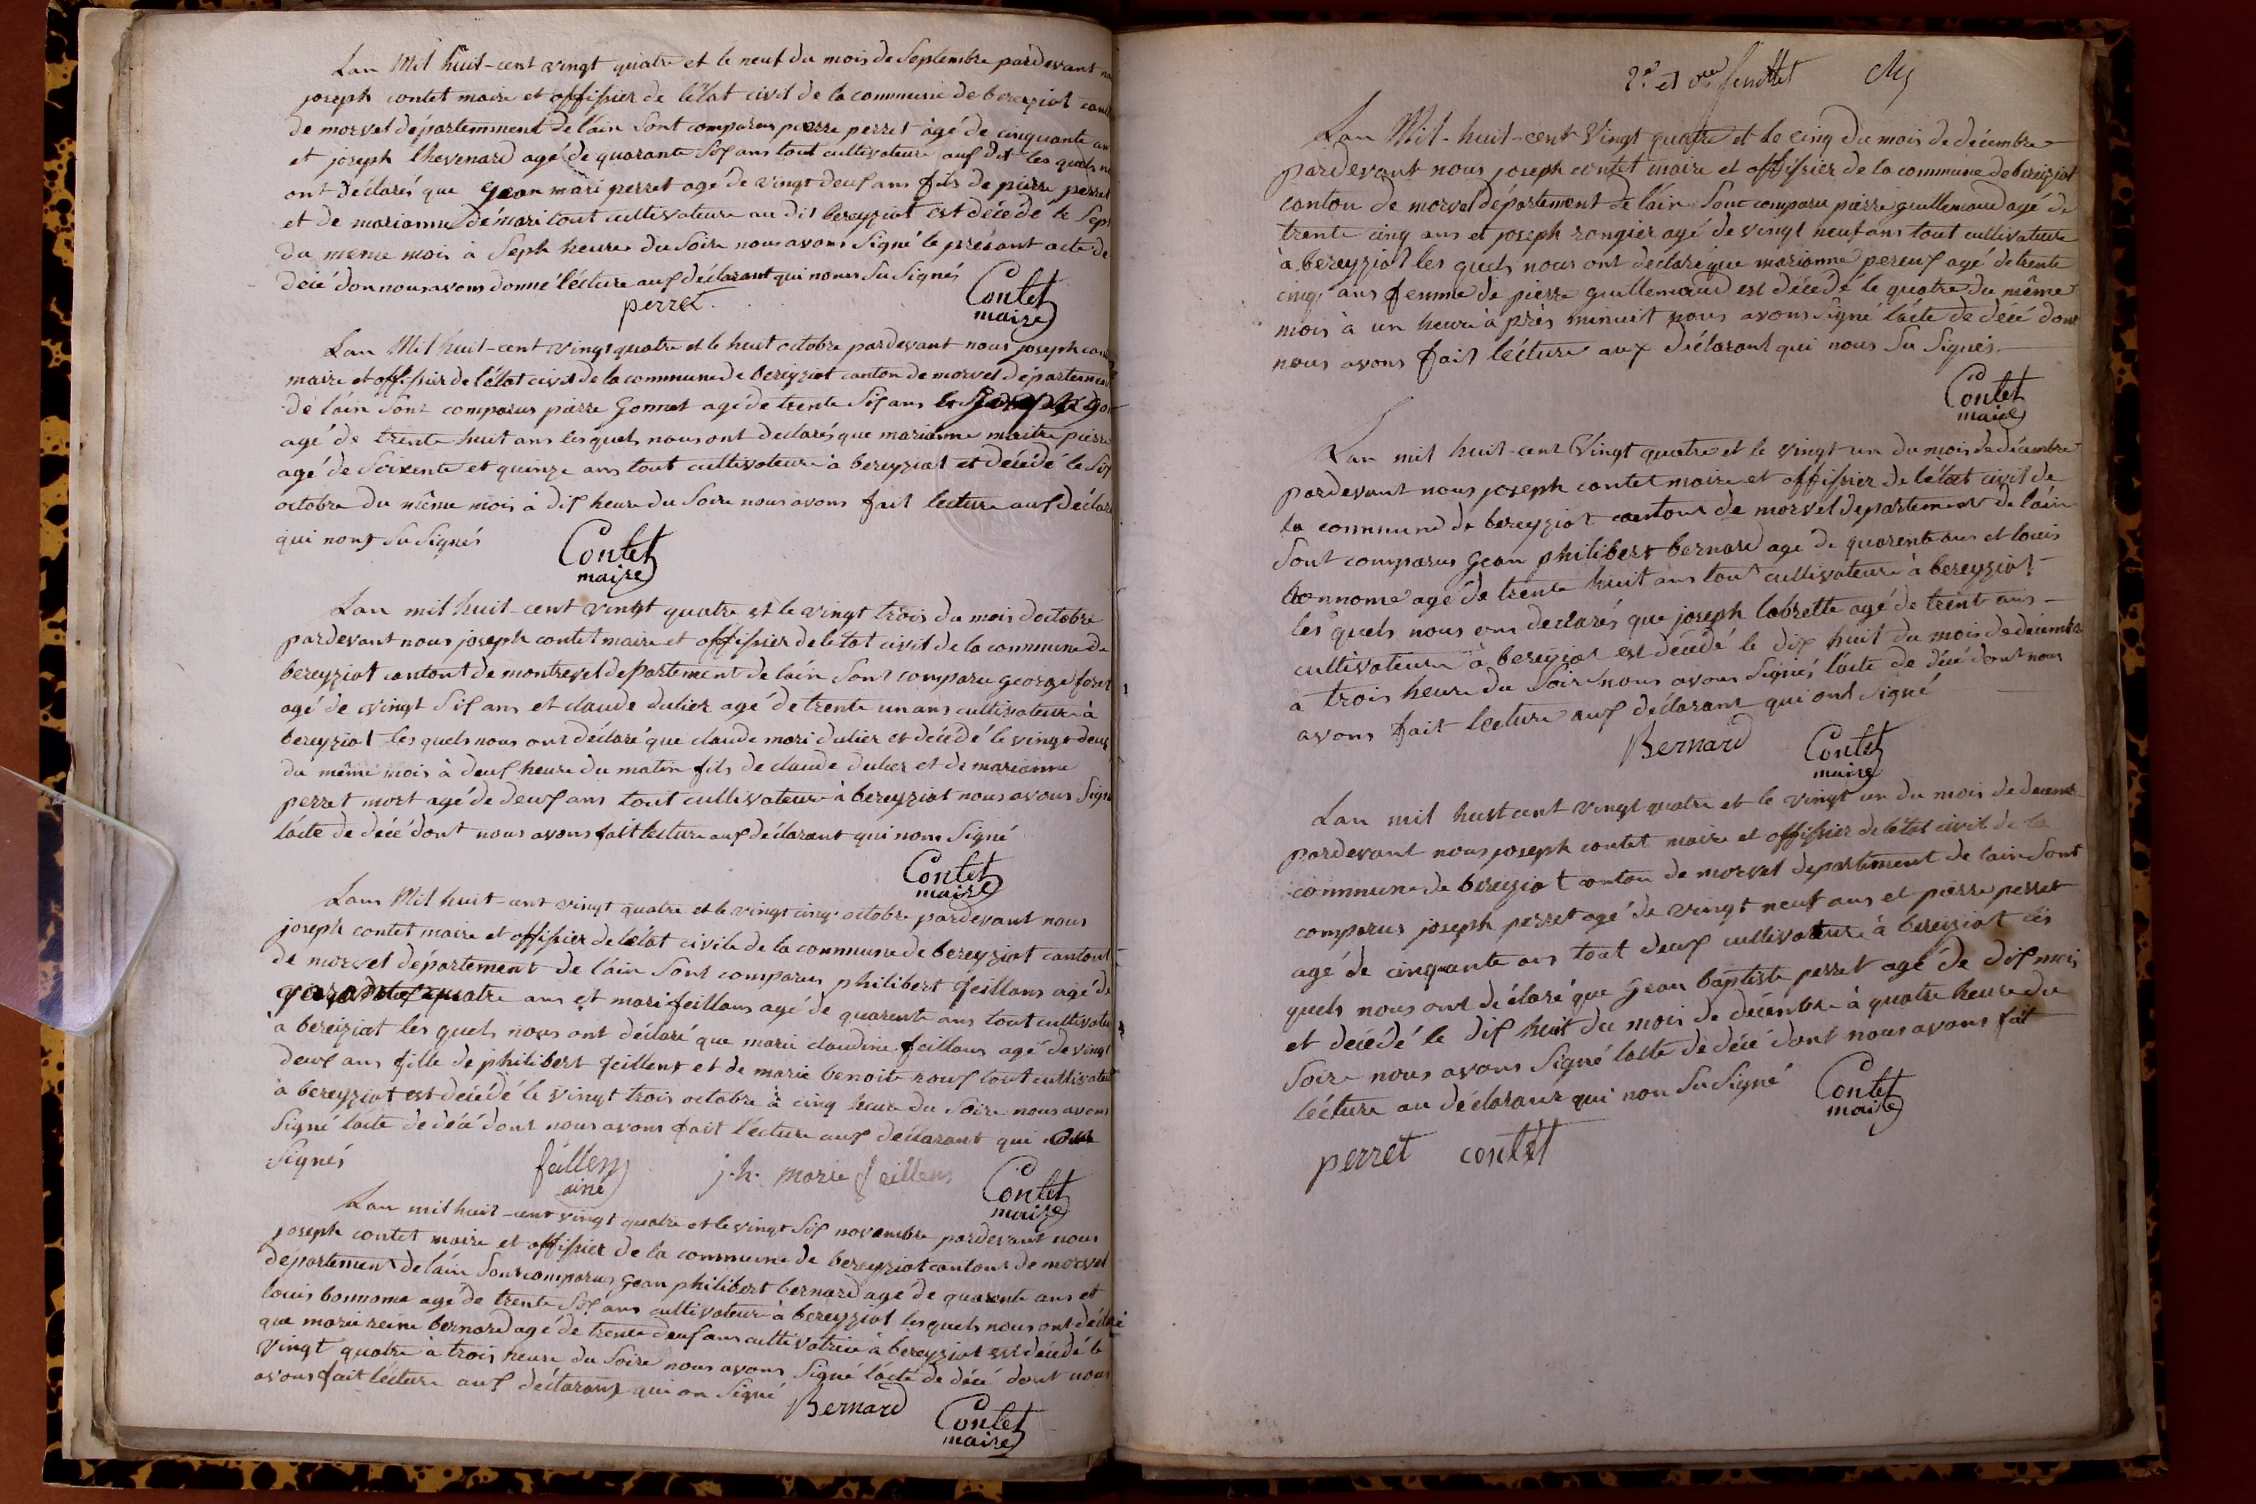 Lan Mil huit-cent vingt quatre et le neuf du mois de Septembre pardevant
joseph contet maire et offissier de létat civil de la commune de bereyziat
de morvel département de lain sont comparus pierre perret agé de cinquante
et joseph thevenard agé de quarante six ans tout cultivateur aux dit les quels
ont déclarés que gean mari perret agé de vingt deux ans fils de pierre perret
et de marianne démari tout cultivateur au dit bereyziat est décédé le sept
du meme mois à Seph heure du Soire nous avons Signé le présant acte de
décé don nous avons donné lécture aux déclarant qui nonu Su Signés
perret
Contet
maire
Lan Mil huit-cent vingt quatre et le huit octobre pardevant nous joseph
maire et offissier de létat civil de la commune de bereyziat canton de morvel département
de lain Sont comparus pierre Gonnet agé de trente Six ans
agé de trente huit ans les quels nous ont declarés que marianne maitre pierre
agé de Soixente et quinze ans tout cultivateur à bereyziat et décédé le Six
octobre du même mois à dix heure du Soire nous avons fait lecture aux
qui nons Su Signés
Contet
maire
Lan mil huit-cent vingt quatre et le vingt trois du mois doctobre
pardevant nous joseph contet maire et offissier de létat civil de la commune de
bereyziat cantont de montrevel departement de lain Sont comparu george
agé de vingt Six ans et claude dulier agé de trente un ans cultivateur à
bereyziat les quels nous ont déclaré que claude mari dulier et décédé le vingt deux
du même mois à deux heure du matin fils de claude dulier et de marianne
perret mort agé de deux ans tout cultivateur à bereyziat nous avons Signé
lacte de décé dont nous avons fait lecture aux déclarant qui nons Signé
Contet
maire
Lans Mil huit-cent vingt quatre et le vingt cinq octobre pardevant nous
joseph contet maire et offissier de létat civile de la commune de bereyziat cantont
de morvel département de lain Sont comparus philibert feillans agé de
quatre ans et mari feillans agé de quarente ans tout cultivateur
a bereiziat les quels nous ont déclaré que marie claudine feillans agé de vingt
deux ans fille de philibert feillens et de marie benoite roux tout cultivateur
à bereyziat est décédé le vingt trois octobre à cinq heure du Soire nous avons
Signé lacte de décé dont nous avons fait lecture aux déclarant qui
Signés
feillens
ainé
j.h. marie feillens
Contet
maire
Lan mil huit-cent vingt quatre et le vingt Six novembre pardevant nous
joseph contet maire et offissier de la commune de bereyziat cantont de morvel
département de lain Sont comparus gean philibert bernard agé de quarente ans et
louis bonnome agé de trente Six ans cultivateur à bereyziat les quels nous ont déclaré
que marie reine bernard agé de trente deux ans cultivatrice à bereyziat est décédé le
vingt quatre à trois heure du Soire nous avons Signé lacte de décé dont nous
avons fait lécture aux déclarant qui on Signé
Bernard
Contet
maire
2e et feuillet
Lan Mil-huit-cent Vingt quatre et le cinq du mois de décembre
pardevant nous joseph contet maire et offissier de la commune de bereiziat
canton de morvel département de lain Sont comparu pierre guillemaud agé de
trente cinq ans et joseph rongier agé de vingt neuf ans tout cultivateur
à bereyziat les quels nous ont déclaré que marianne pereux agé de trente
cinq ans femme de pierre guillemaud est décédé le quatre du même
mois à un heure à près minuit nous avons Signé lacte de décé dont
nous avons fait lécture aux déclarant qui nons Su Signés
Contet
maire
Lan mil huit-cent Vingt quatre et le vingt un du mois de décembre
pardevant nous joseph contet maire et offissier de létat civil de
la commune de bereyziat cantont de morvel departement de lain
Sont comparus gean philibert bernard agé de quarente ans et louis
bonnome agé de trente huit ans tout cultivateur à bereyziat
les quels nous ons declarés que joseph labrette agé de trent ans
cultivateur à bereiziat est décédé le dix huit du mois de decembre
à trois heure du Soir nous avons Signés lacte de décé dont nous
avons fait lecture aux déclarant qui ont Signé
Bernard
Contet
maire
Lan mil huit cent vingt quatre et le vingt un du mois de decembre
pardevant nous joseph contet maire et offissier de létat civil de la
commune de bereiziat canton de morvel departement de lain Sont
comparus joseph perret agé de vingt neuf ans et pierre perret
agé de cinquante ans tout deux cultivateur à bereiziat les
quels nous ont déclaré que gean baptiste perret agé de dix mois
et décédé le dix huit du mois de décembre à quatre heure du
Soire nous avons Signé lacte de décé dont nous avons fait
lécture au déclarant qui non Su Signé
Contet
maire
perret contet